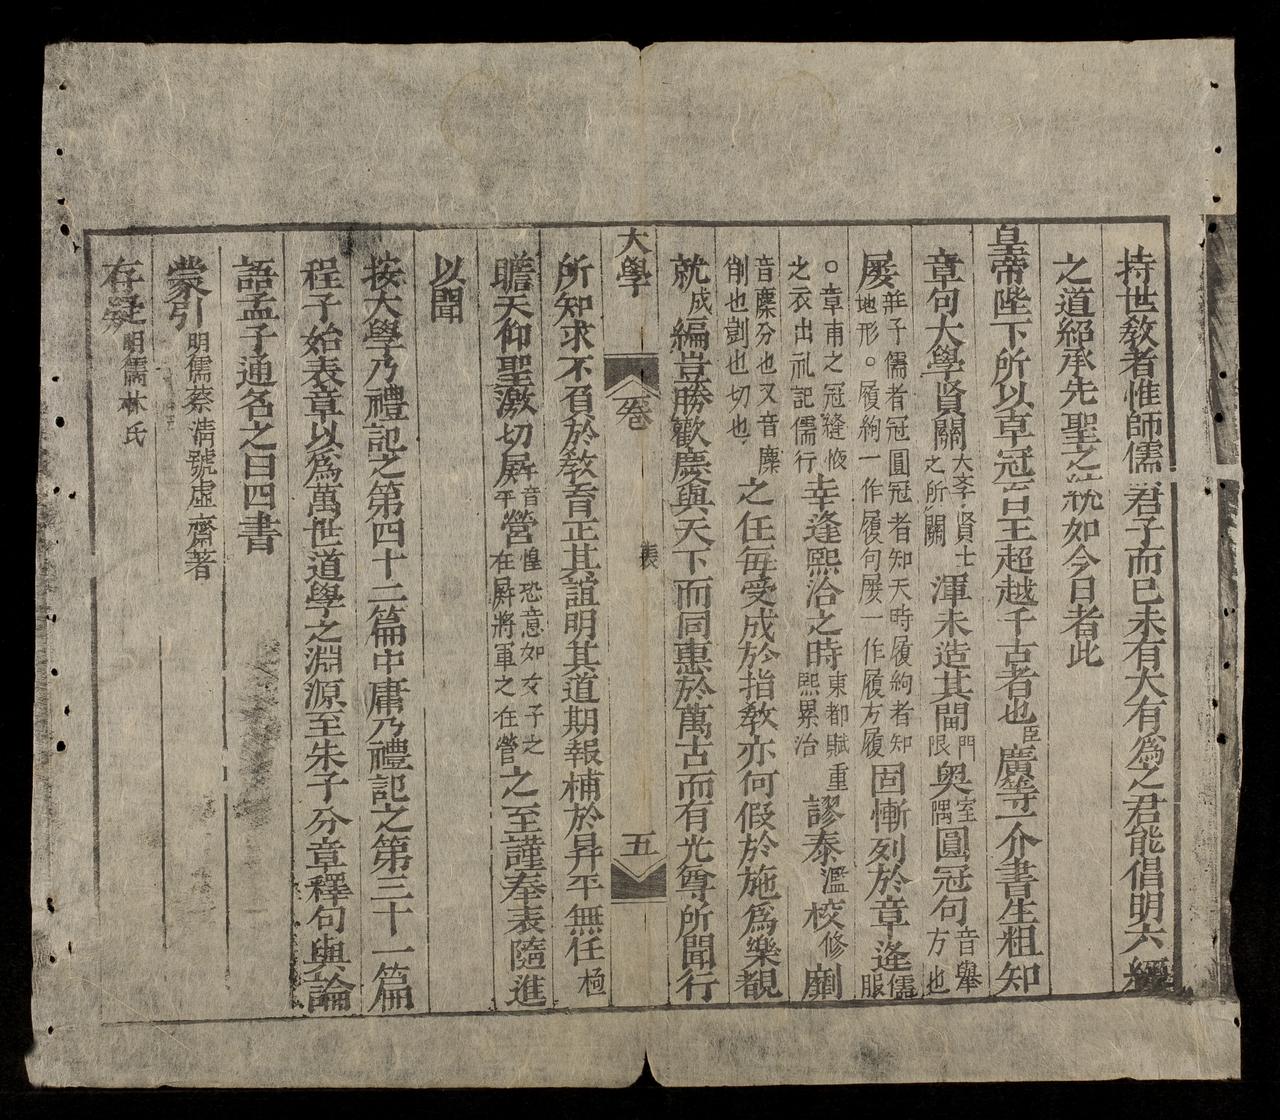 持世教者惟師儒君子而已未有大有為之君能倡明六經
之道紹承先聖之統如今日者此
皇帝陛下所以卓冠百王超越千古者也臣廣等一介書生粗知
章句大學賢關大孝賢士之所關渾未造其閫門限奧室隅圓冠句音舉方也
屨莊子儒者冠圓冠者知天時履絇者知地形○履絇一作履句屨一作履方履固慚列於章逢儒服
○章甫之冠縫掖之衣出礼記儒行幸逢熙洽之時東都賦重熙累洽謬泰濫校修𠜍
音麋分也又音糜削也剴也切也之任每受成於指教亦何假於施為樂覩
就成編豈勝歡慶與天下而同惠於萬古而有光尊所聞行
大學 卷 表 五
所知求不負於教育正其誼明其道期報補於昇平無任極
瞻天仰聖激切屏音平營惶恐意如女子之在屏將軍之在營之至謹奉表隨進
以聞
按大學乃禮記之第四十二篇中庸乃禮記之第三十一篇
程子始表章以為萬世道學之淵源至朱子分章釋句與論
語孟子通名之曰四書
蒙引明儒蔡清號虛齋著
存疑明儒林氏